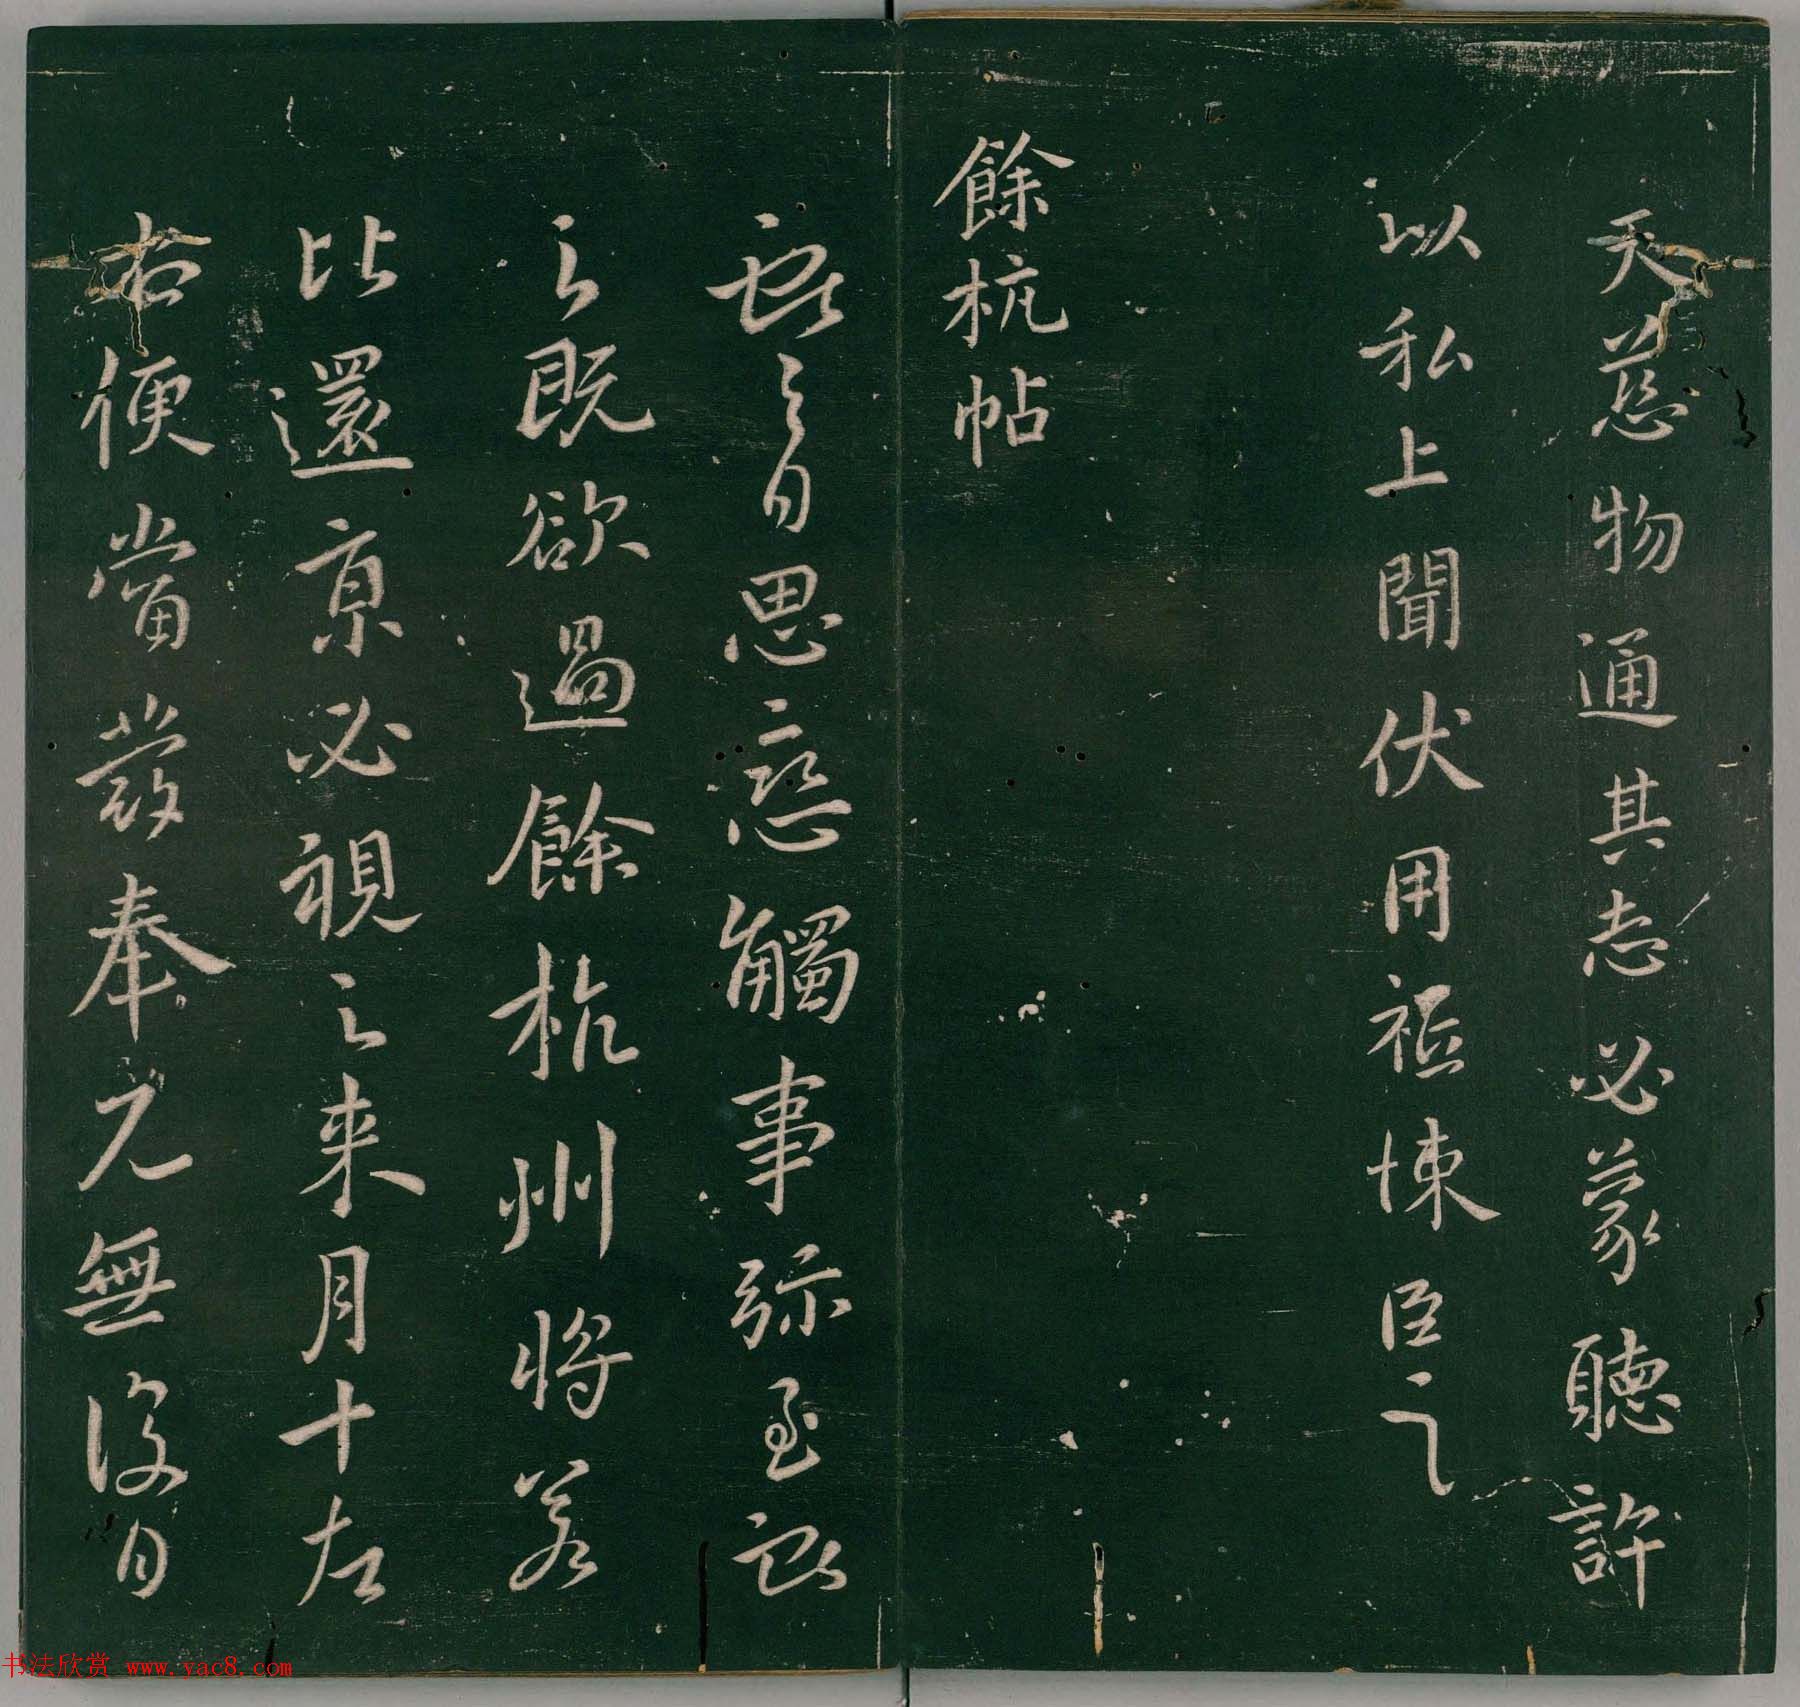 天慈物通其志必蒙聽許
以私上聞伏用祗悚臣之
餘杭帖
哀之日思戀觸事弥至
之既欲過餘杭州將若
比還京必視之来月十左
右便當發奉見無復日
书法欣赏 www.yac8.com